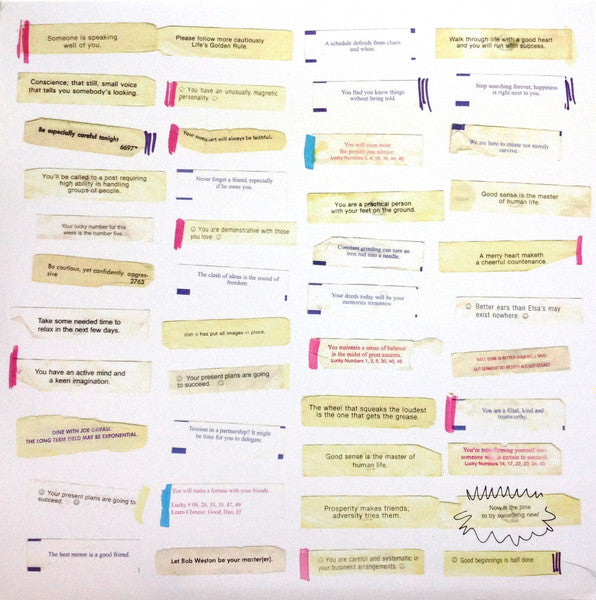 Someone is speaking
well of you.
Conscience; that still, small voice
that tells you somebody's looking.
Be especially careful tonight
6697
You'll be called to a post requiring
high ability in handling
groups-of-people.
Your lucky number for this
week is the number five.
Be cautious, yet confidently aggres-
sive
2763
Take some needed time to
relax in the next few days.
You have an active mind and
a keen imagination.
DINE WITH JOE
THE LONG TERM YIELD MAY BE EXPONENTIAL.
Your present plans are going to
succeed.
The best mirror is a good friend.
Please follow more cautiously
Life's Golden Rule.
You have an unusually magnetic
personality.
Your will always be faithful.
Never forget a friend, especially
if he owes you.
You are demonstrative with those
you love.
The clash of ideas is the sound of
freedom.
dan o has put all images in place.
Your present plans are going
to succeed.
Tension in a partnership? It might
be time for you to delegate
You will make a fortune with your friends
Lucky # 08, 20, 33, 35, 47, 49
Learn Chinese: Good, Hao,
Let Bob Weston be your ma:ter(er).
A schedule defends from chaos
and whim.
You find you know things
without being told.
You will soon meet
the person you admire.
Lucky Numbers 44, 45
You are a practical person
with your feet on the ground.
Constant grinding can turn an
iron rod into a needle.
Your deeds today will be your
memories tomorrow.
You maintain a sense of balance
in the midst of great success.
Lucky Numbers 1, 2, 5, 30, 42, 45
The wheel that squeaks the loudest
is the one that gets the grease.
Good sense is the master of
human life.
Prosperity makes friends;
adversity tries them.
You are careful and systematic in
your business arrangements.
Walk through life with a good heart
and you will run with success.
Stop searching forever, happiness
is right next to you.
We are here to create not merely
survive.
Good sense is the master
of human life.
A merry heart maketh
a cheerful countenance.
Better ears than Elsa's may
exist nowhere.
WELL DONE IS BETTER THAN WELL SAID
GUT GEMACHT IST BESSER ALS GUT GESAGT
You are a filial, kind and
trustworthy.
You're transforming yourself into
someone is certain to succeed.
Lucky Numbers 14, 17, 22, 23, 24, 43
Now is the time
to try something new!
Good beginnings is half done